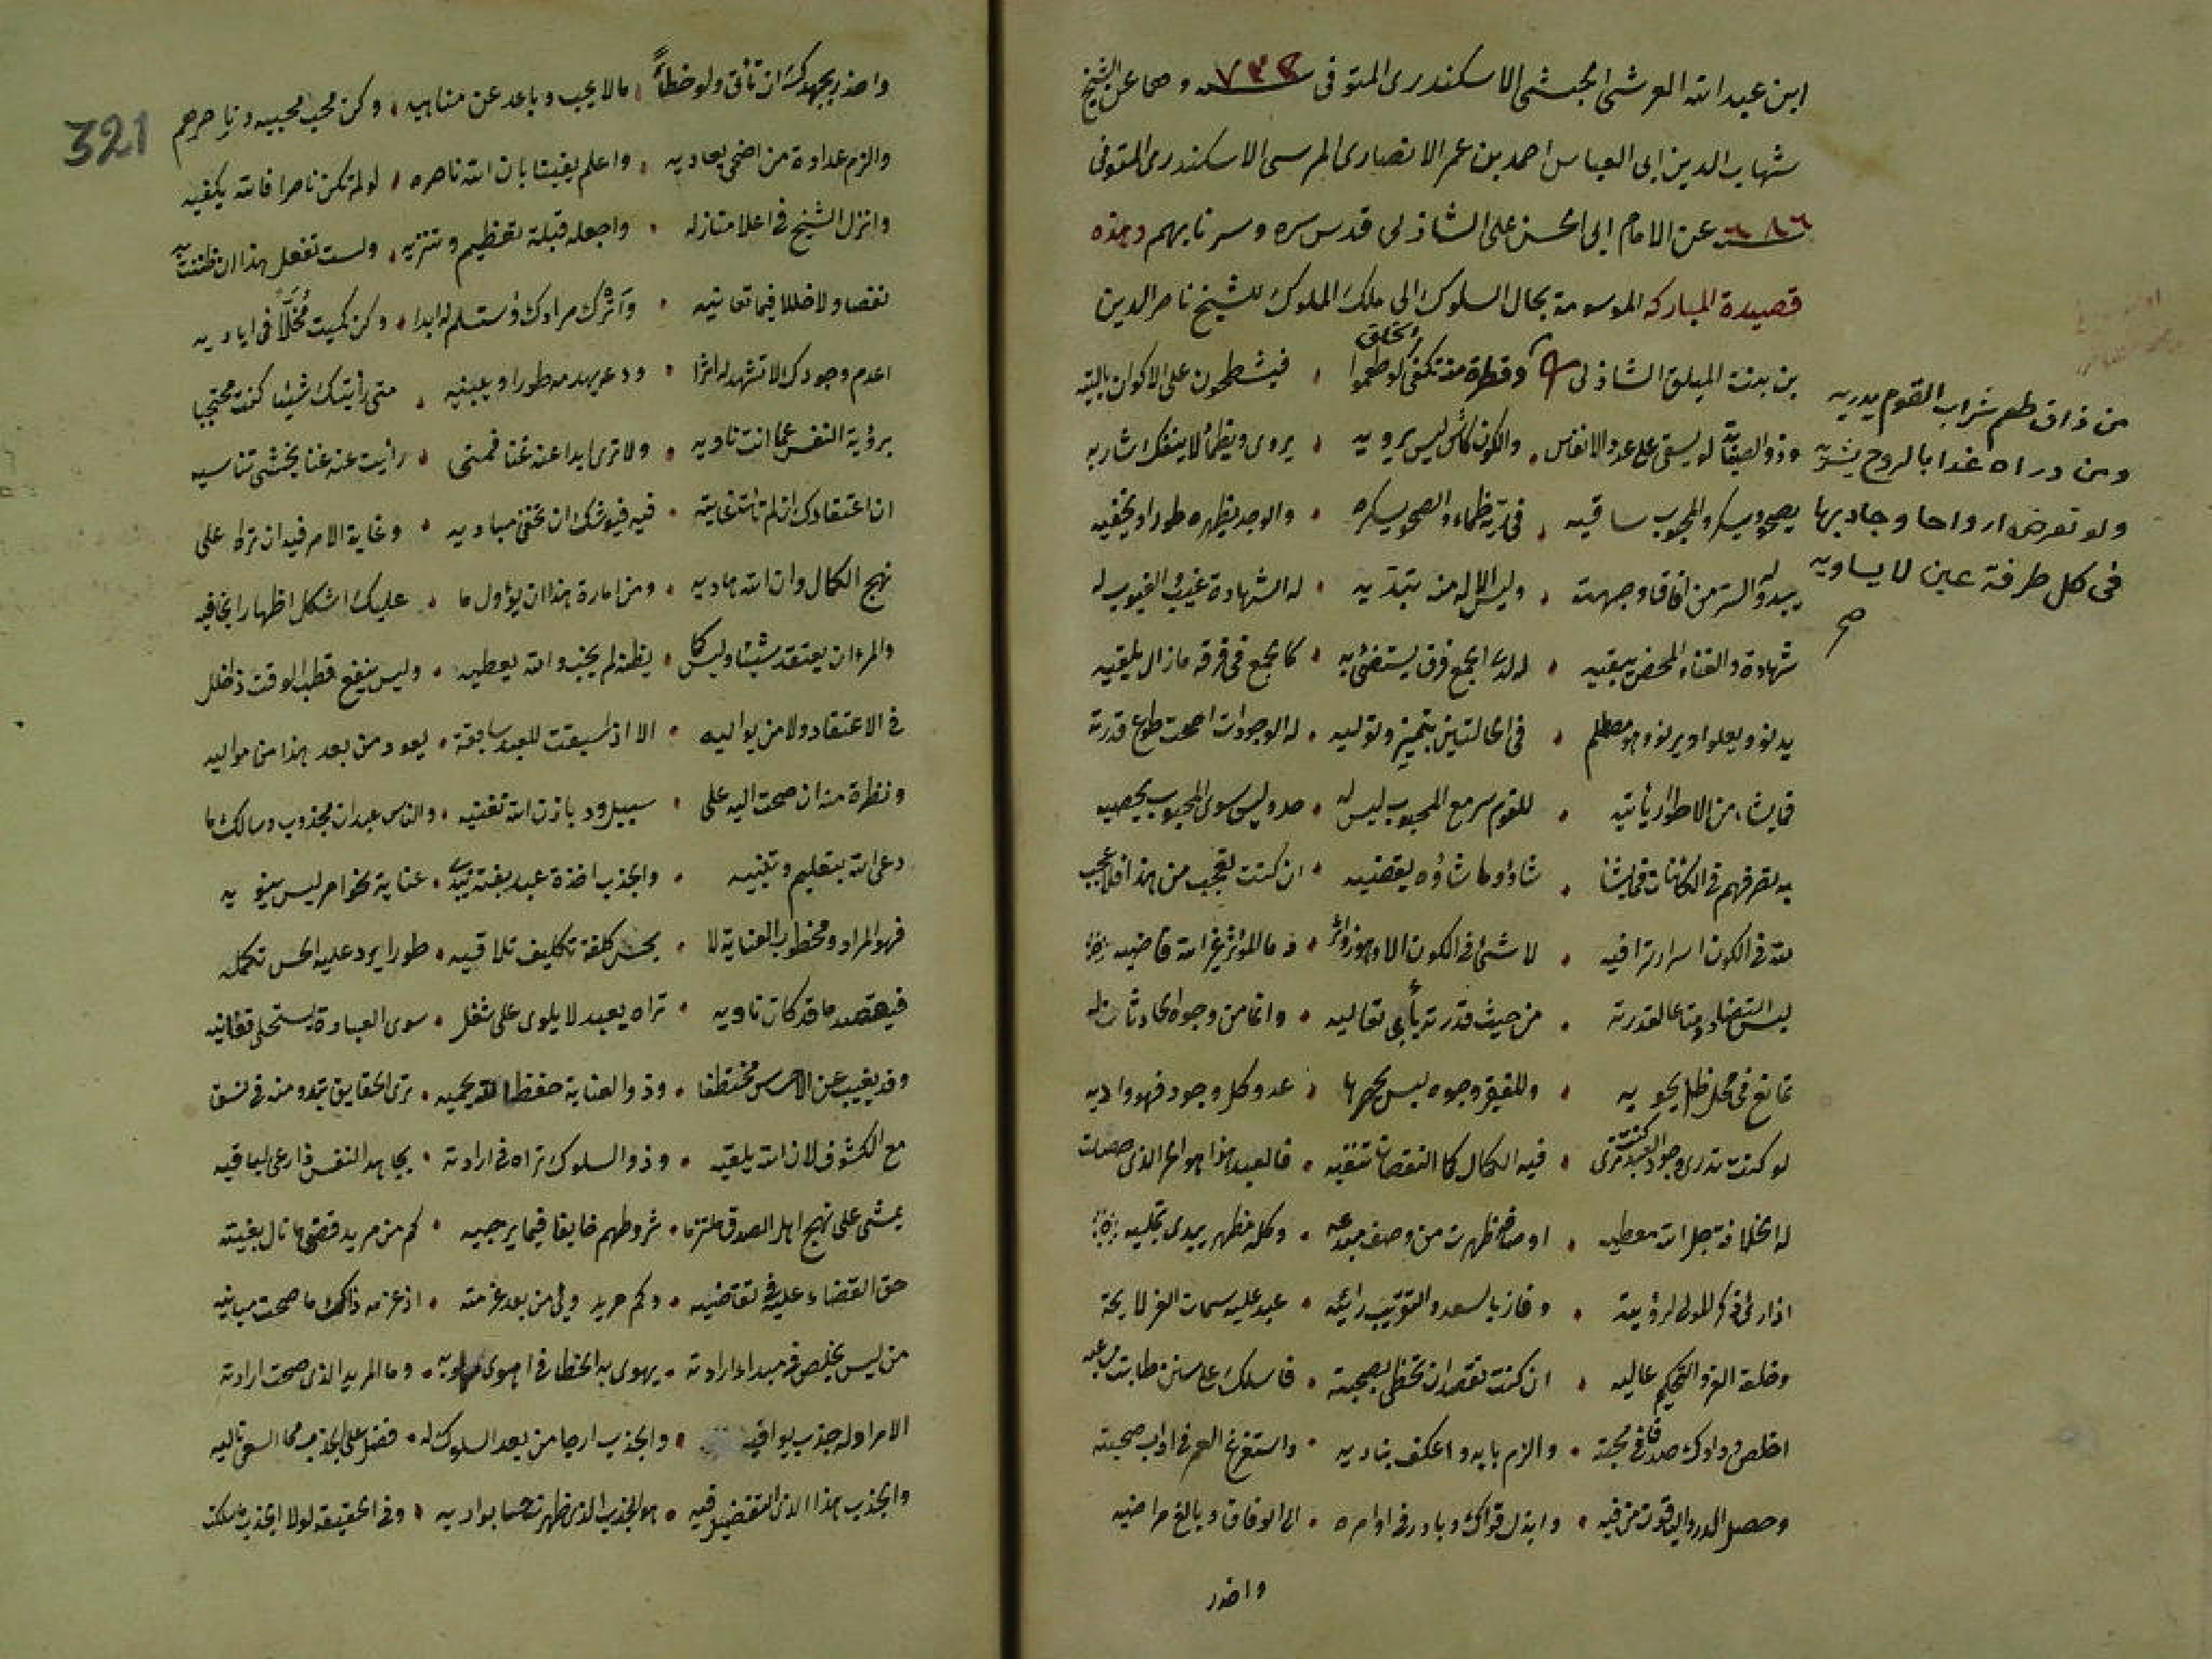 ابن عبد الله العرشى الحبشى الاسكندرى المتوفى سنه ٧٣٢ وهما عن الشيخ
شهاب الدين ابى العباس احمد بن عمر الانصارى المرسى الاسكندرى المتوفى
سنه ٦٨٦ عن الامام ابى الحسن على الشاذلى قدس سره وسرنا بهم وهذه
قصيدة المباركه الموسومة بحال السلوك الى ملك الملوك للشيخ ناصر الدين
بن بنت الميلق الشاذلى وقطرة منه تكفى الخلق لو طعموا ، فيشطحون على الاكوان بالتيه
من ذاق طعم شراب القوم يدريه
ومن دراه غدا بالروح يشريه
ولو تعرض ارواحا وجاد بها
فى كل طرفة عين لا يساويه
صح
وذو الصبابة لو يسقى على عدد الانفاس ، والكون كأس ليس يرويه ، يروى ويظمأ لا ينفك شاربه
يصحو ويسكر والمحبوب ساقيه ، فى ريه ظماء والصحو يسكره ، والوجد يظهره طورا ويخفيه
يبدو له السر من افاق وجهته ، وليس الا له منه تبديه ، له الشهادة غيب والغيوب له
شهادة والفناء المحض يبقيه ، له لدى الجمع فرق يستضئ به ، كالجمع فى فرقه مازال يلقيه
يدنو ويعلو ويرنو وهو مصطلم ، فى الحالتين بتمييز وتوليه ، له الوجودات اضحت طوع قدرته
فمايشاء من الاطوار يأتيه ، للقوم سر مع المحبوب ليس له ، حد وليس سوى المحبوب يحصيه
به تصرفهم فى الكائنات فما يشا ، شاؤوا وما شاؤه يقضيه ، ان كنت تعجب من هذا فلا عجب
لله فى الكون اسرار ترا فيه ، لا شئ فى الكون الا وهو ذو اثر ، وما المؤثر غير الله قاضيه
ليس التضاد مناعا لقدرته ، من حيث قدرته يأبى تعاليه ، وانما من وجوه الحادثات له
تمانع فى محل ظل يحويه ، وللفقير وجوه ليس يحصرها ، عد وكل وجود فهو واديه
لو كنت تدرى وجود العبد كنت ترى ، فيه الكمال كما النقصان تنفيه ، فالعبد هذا هو الحر الذى حصلت
له الخلافة جل الله معطيه ، اوصافه ظهرت من وصف مبدعه ، وكل مظهر يبدى تجليه
اذا رئى ذكر المولى لرؤيته ، وفاز بالسعد والتقريب رائيه ، عبد عليه سمات العز لايحة
وخلعة العز والتحكيم عاليه ، ان كنت تقصد ان تحظى بصحبته ، فاسلك على سنن طابت مساعيه
اخلص ودادك صدقا فى محبته ، والزم بابه واعكف بناديه ، واستغرق العمر فى اداب صحبته
وحصل الدر والياقوت من فيه ، وابذل قواك وبادر فى اوامره ، الى الوفاق وبالغ مراضيه
واحذر
321
واحذر بجهدك ان تأتى ولو خطأً ، مالا يحب وباعد عن مناهيه ، وكن محب محبيه وناصرهم
والزم عداوة من اضحى يعاديه ، واعلم يقينا بان الله ناصره ، لو لم تكن ناصرا فالله يكفيه
وانزل الشيخ فى اعلا منازله ، واجعله قبلة تعظيم وتنزيه ، ولست تفعل هذا ان ظننت به
نقصا ولا خللا فيما تعانيه ، واترك مرادك واستسلم له ابدا ، وكن كميت مخلا فى اياديه
اعدم وجودك لا تشهد له اثرا ، ودعه يهدمه طورا ويبنيه ، متى رأيتك شيئا كنت محتجبا
برؤية النفس عما انت ناويه ، ولا ترى ابدا عنه غنا فمتى ، رأيت عنه غنا يخشى تناسيه
ان اعتقادك ان لم تأت غايته ، فيه فيوشك ان تخفى مباديه ، وغاية الامر فيه ان تراه على
نهج الكمال وان الله هاديه ، ومن امارة هذا ان يؤول ما ، عليك اشكل اظهارا لخافيه
والمرء ان يعتقد شيئا وليس كما ، يظنه لم يخب والله يعطيه ، وليس ينفع قطب الوقت ذا خلل
فى الاعتقاد ولا من يواليه ، الا اذا سبقت للعبد سابقة ، يعود من بعد هذا من مواليه
ونظرة منه ان صحت اليه على ، سبيل ود باذن الله تغنيه ، والناس عبدان مجذوب وسالك ما
دعى الله بتعليم وتنبيه ، والجذب اخذة عبد بغتة بيد ، عناية نحو امر ليس ينويه
فهو المراد ومخطوب العناية لا ، يحس كلفة تكليف تلاقيه ، طورا يرد عليه الحس تكمله
فيقصد ما قد كان ناويه ، تراه يعبد لا يلوى على شغل ، سوى العبادة يستحلى تفانيه
وقد يغيب عن الاحساس مختطفا ، وذو العناية حفظ الله يحميه ، ترى الحقايق تبدو منه فى نسق
مع الكشوف لان الله يلقيه ، وذو السلوك تراه فى ارادته ، يجاهد النفس فارعى لباقيه
يمشى على نهج اهل الصدق ملتزما ، شروطهم خايفا فيما يرجيه ، كم من مريد قضى ما نال بغيته
حق القضاء عليه فى تقاضيه ، وكم مريد ولى من بعد عزمته ، اذ عزمه ذاك ما صحت مبانيه
من ليس يخلص فى مبدا ارادته ، يهوى به الحظ فى اهوى مهاويه ، وما المريد الذى صحت ارادته
الا مراد له جذب يوافيه ، والجذب ارجا من بعد السلوك له ، فضل على الجذب مما السعى تاليه
والجذب هذا الذى التفضيل فيه ، هو الجذب الذى ظهرت حسا بواديه ، وفى الحقيقة لولا الجذب ما سلكت